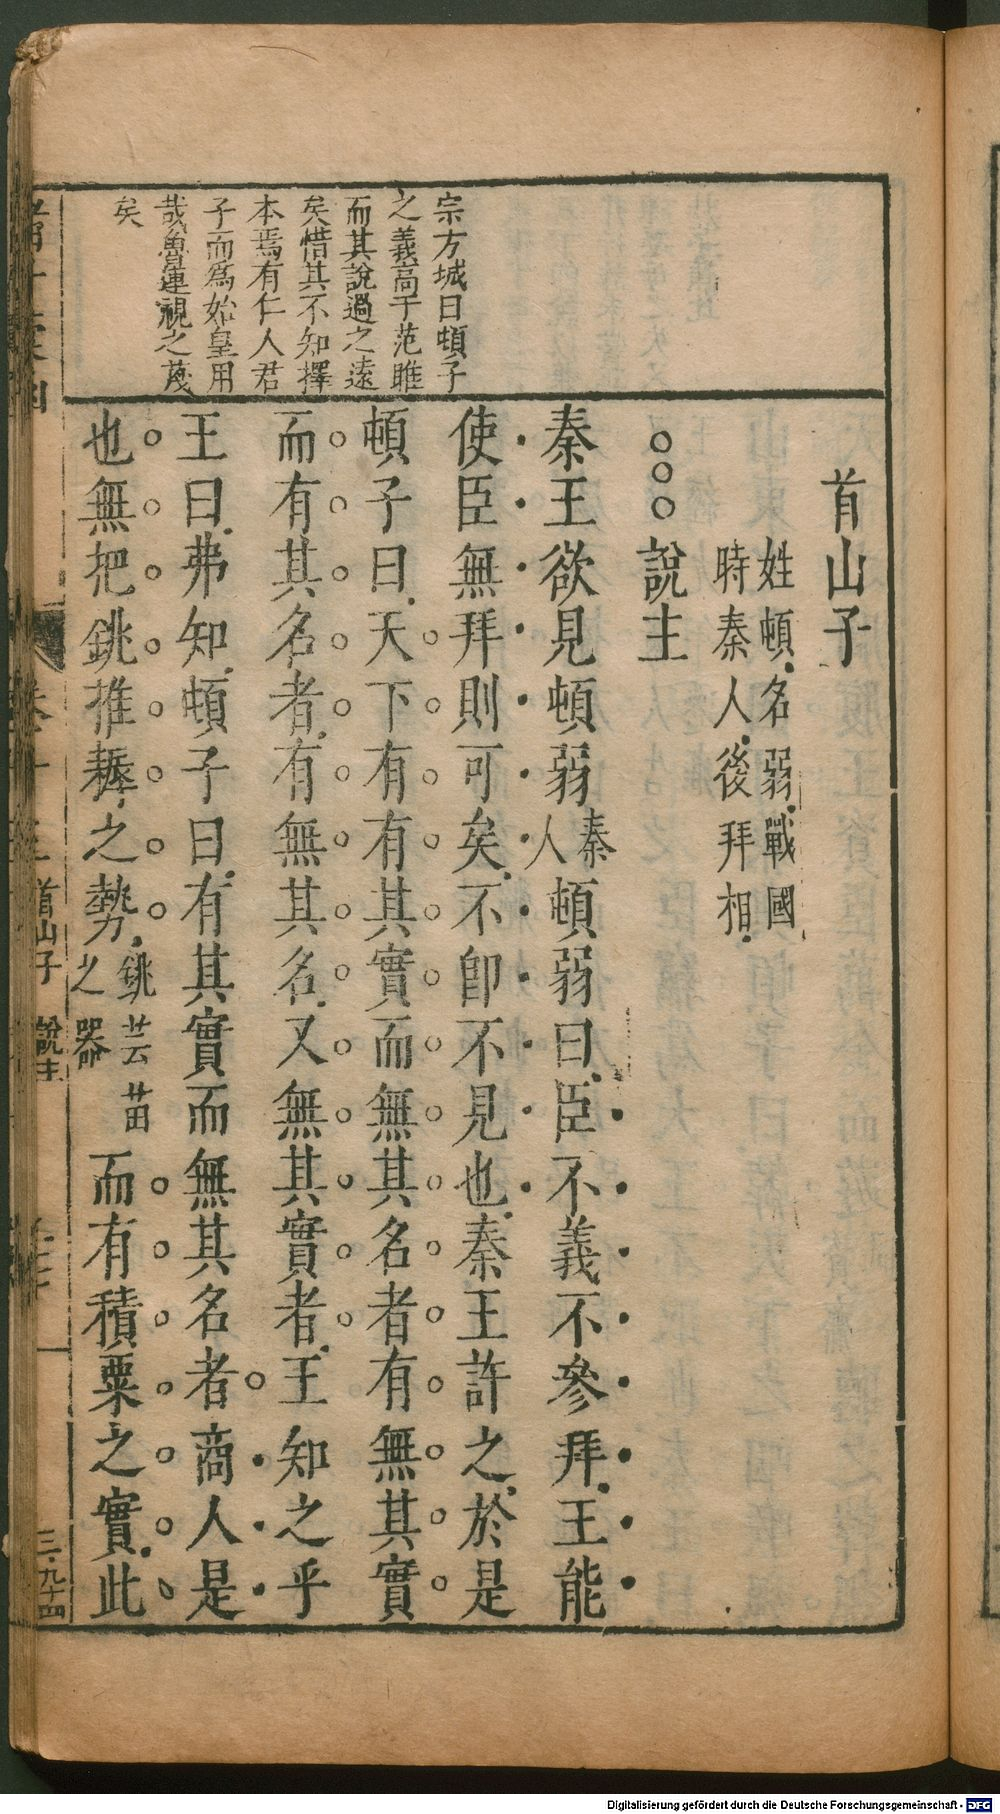 宗方城曰頓子
之義高于范雎
而其說過之遠
矣惜其不知擇
本焉有仁人君
子而為始皇用
哉魯連視之蔑
矣
首山子
姓頓名弱戰國
時秦人後拜相
說主
秦王欲見頓弱秦人頓弱曰臣不義不參拜王能
使臣無拜則可矣不卽不見也秦王許之於是
頓子曰天下有有其實而無其名者有無其實
而有其名者有無其名又無其實者王知之乎
王曰弗知頓子曰有其實而無其名者商人是
也無把銚推耨之勢銚芸苗之器而有積粟之實此
首山子
說主
三九十四
Digitalisierung gefördert durch die Deutsche Forschungsgemeinschaft - DFG